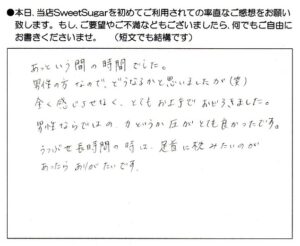 ●本日、当店SweetSugarを初めてご利用されての率直なご感想をお願い
致します。もし、ご要望やご不満などもございましたら、何でもご自由に
お書きくださいませ。 （短文でも結構です）
あっという間の時間でした。
男性の方なので、どうなるかと思いましたが(笑)
全く感じさせなく、とてもお上手でおどろきました。
男性ならではの、力というか圧がとても良かったです。
うつぶせ長時間の時は、足首に枕みたいのが
あったらありがたいです。